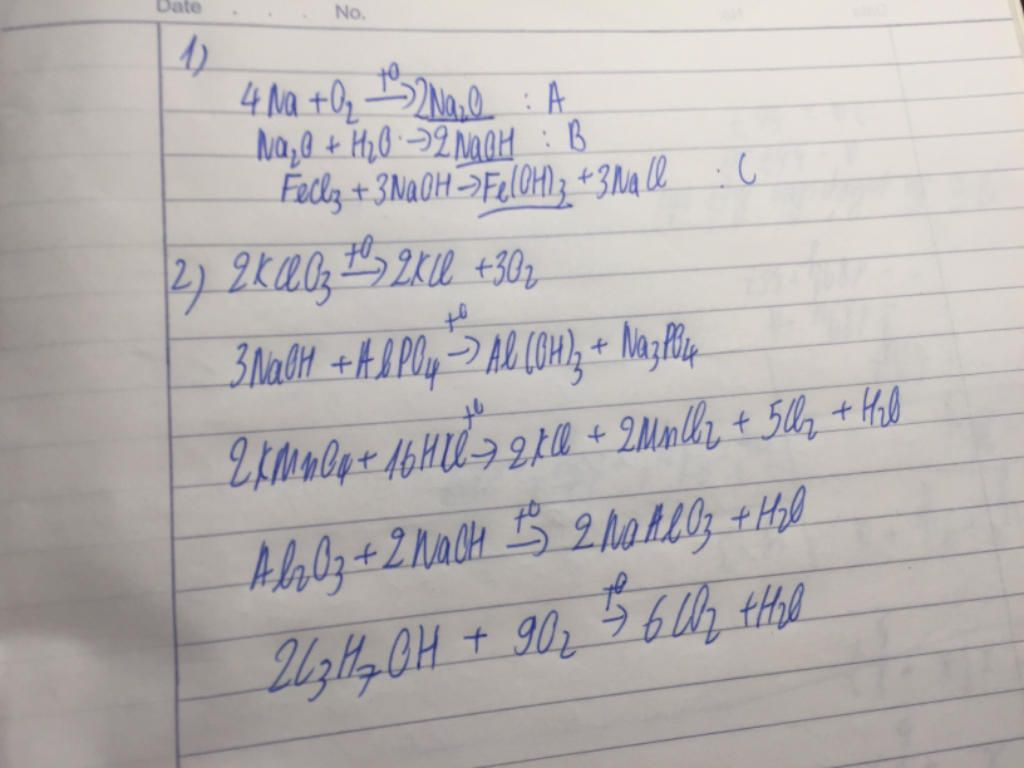 Date . . . No.
1)
4Na + O₂ →(t⁰) 2Na₂O : A
Na₂O + H₂O → 2NaOH : B
FeCl₃ + 3NaOH → Fe(OH)₃ + 3NaCl : C
2) 2KClO₃ →(t⁰) 2KCl + 3O₂
3NaOH + AlPO₄ →(t⁰) Al(OH)₃ + Na₃PO₄
2KMnO₄ + 16HCl →(t⁰) 2KCl + 2MnCl₂ + 5Cl₂ + H₂O
Al₂O₃ + 2NaOH →(t⁰) 2NaAlO₃ + H₂O
2C₃H₇OH + 9O₂ →(t⁰) 6CO₂ + H₂O